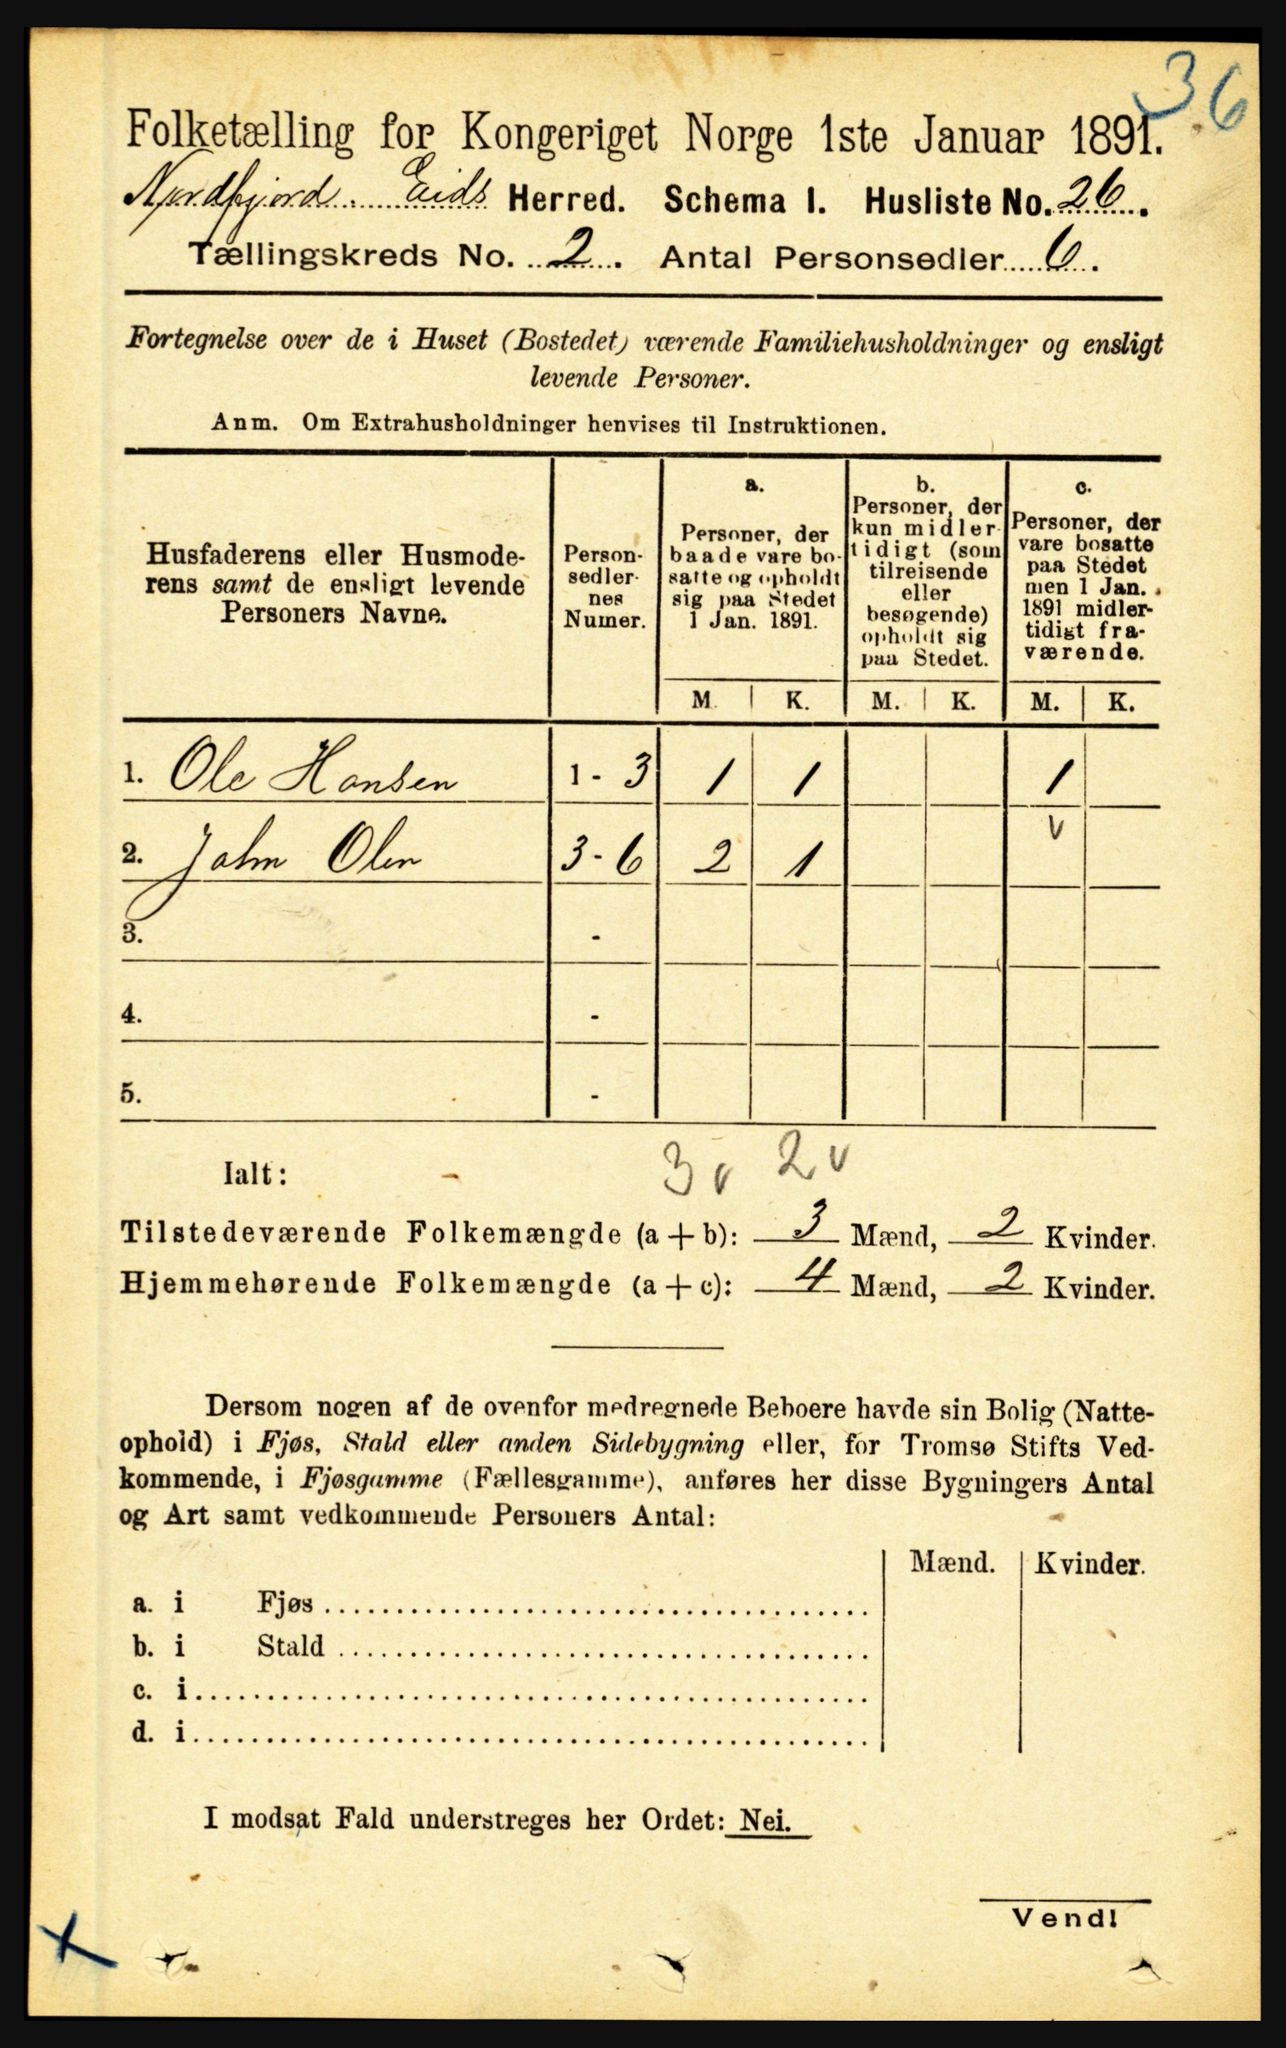 36
Folketælling for Kongeriget Norge 1ste Januar 1891.
Nordfjord. Eids Herred. Schema I. Husliste No. 26.
Tællingskreds No. 2. Antal Personsedler 6.
Fortegnelse over de i Huset (Bostedet) værende Familiehusholdninger og ensligt
levende Personer.
Anm. Om Extrahusholdninger henvises til Instruktionen.
Husfaderens eller Husmode-
rens samt de ensligt levende
Personers Navne.
Person-
sedler-
nes
Numer.
a.
Personer, der
baade vare bo-
satte og opholdt
sig paa Stedet
1 Jan. 1891.
b.
Personer, der
kun midler-
tidigt (som
tilreisende
eller
besøgende)
opholdt sig
paa Stedet.
c.
Personer, der
vare bosatte
paa Stedet
men 1 Jan.
1891 midler-
tidigt fra-
værende.
M. K. M. K. M. K.
1. Ole Hansen 1 - 3 1 1 1
v
2. John Olsn 3 - 6 2 1
3. -
4. -
5. -
3 v 2 v
Ialt: -
Tilstedeværende Folkemængde (a + b): 3 Mænd, 2 Kvinder.
Hjemmehørende Folkemængde (a + c): 4 Mænd, 2 Kvinder.
Dersom nogen af de ovenfor medregnede Beboere havde sin Bolig (Natte-
ophold) i Fjøs, Stald eller anden Sidebygning eller, for Tromsø Stifts Ved-
kommende, i Fjøsgamme (Fællesgamme), anføres her disse Bygningers Antal
og Art samt vedkommende Personers Antal:
Mænd. Kvinder.
a. i Fjøs
b. i Stald
c. i
d. i
I modsat Fald understreges her Ordet: Nei.
Vend!